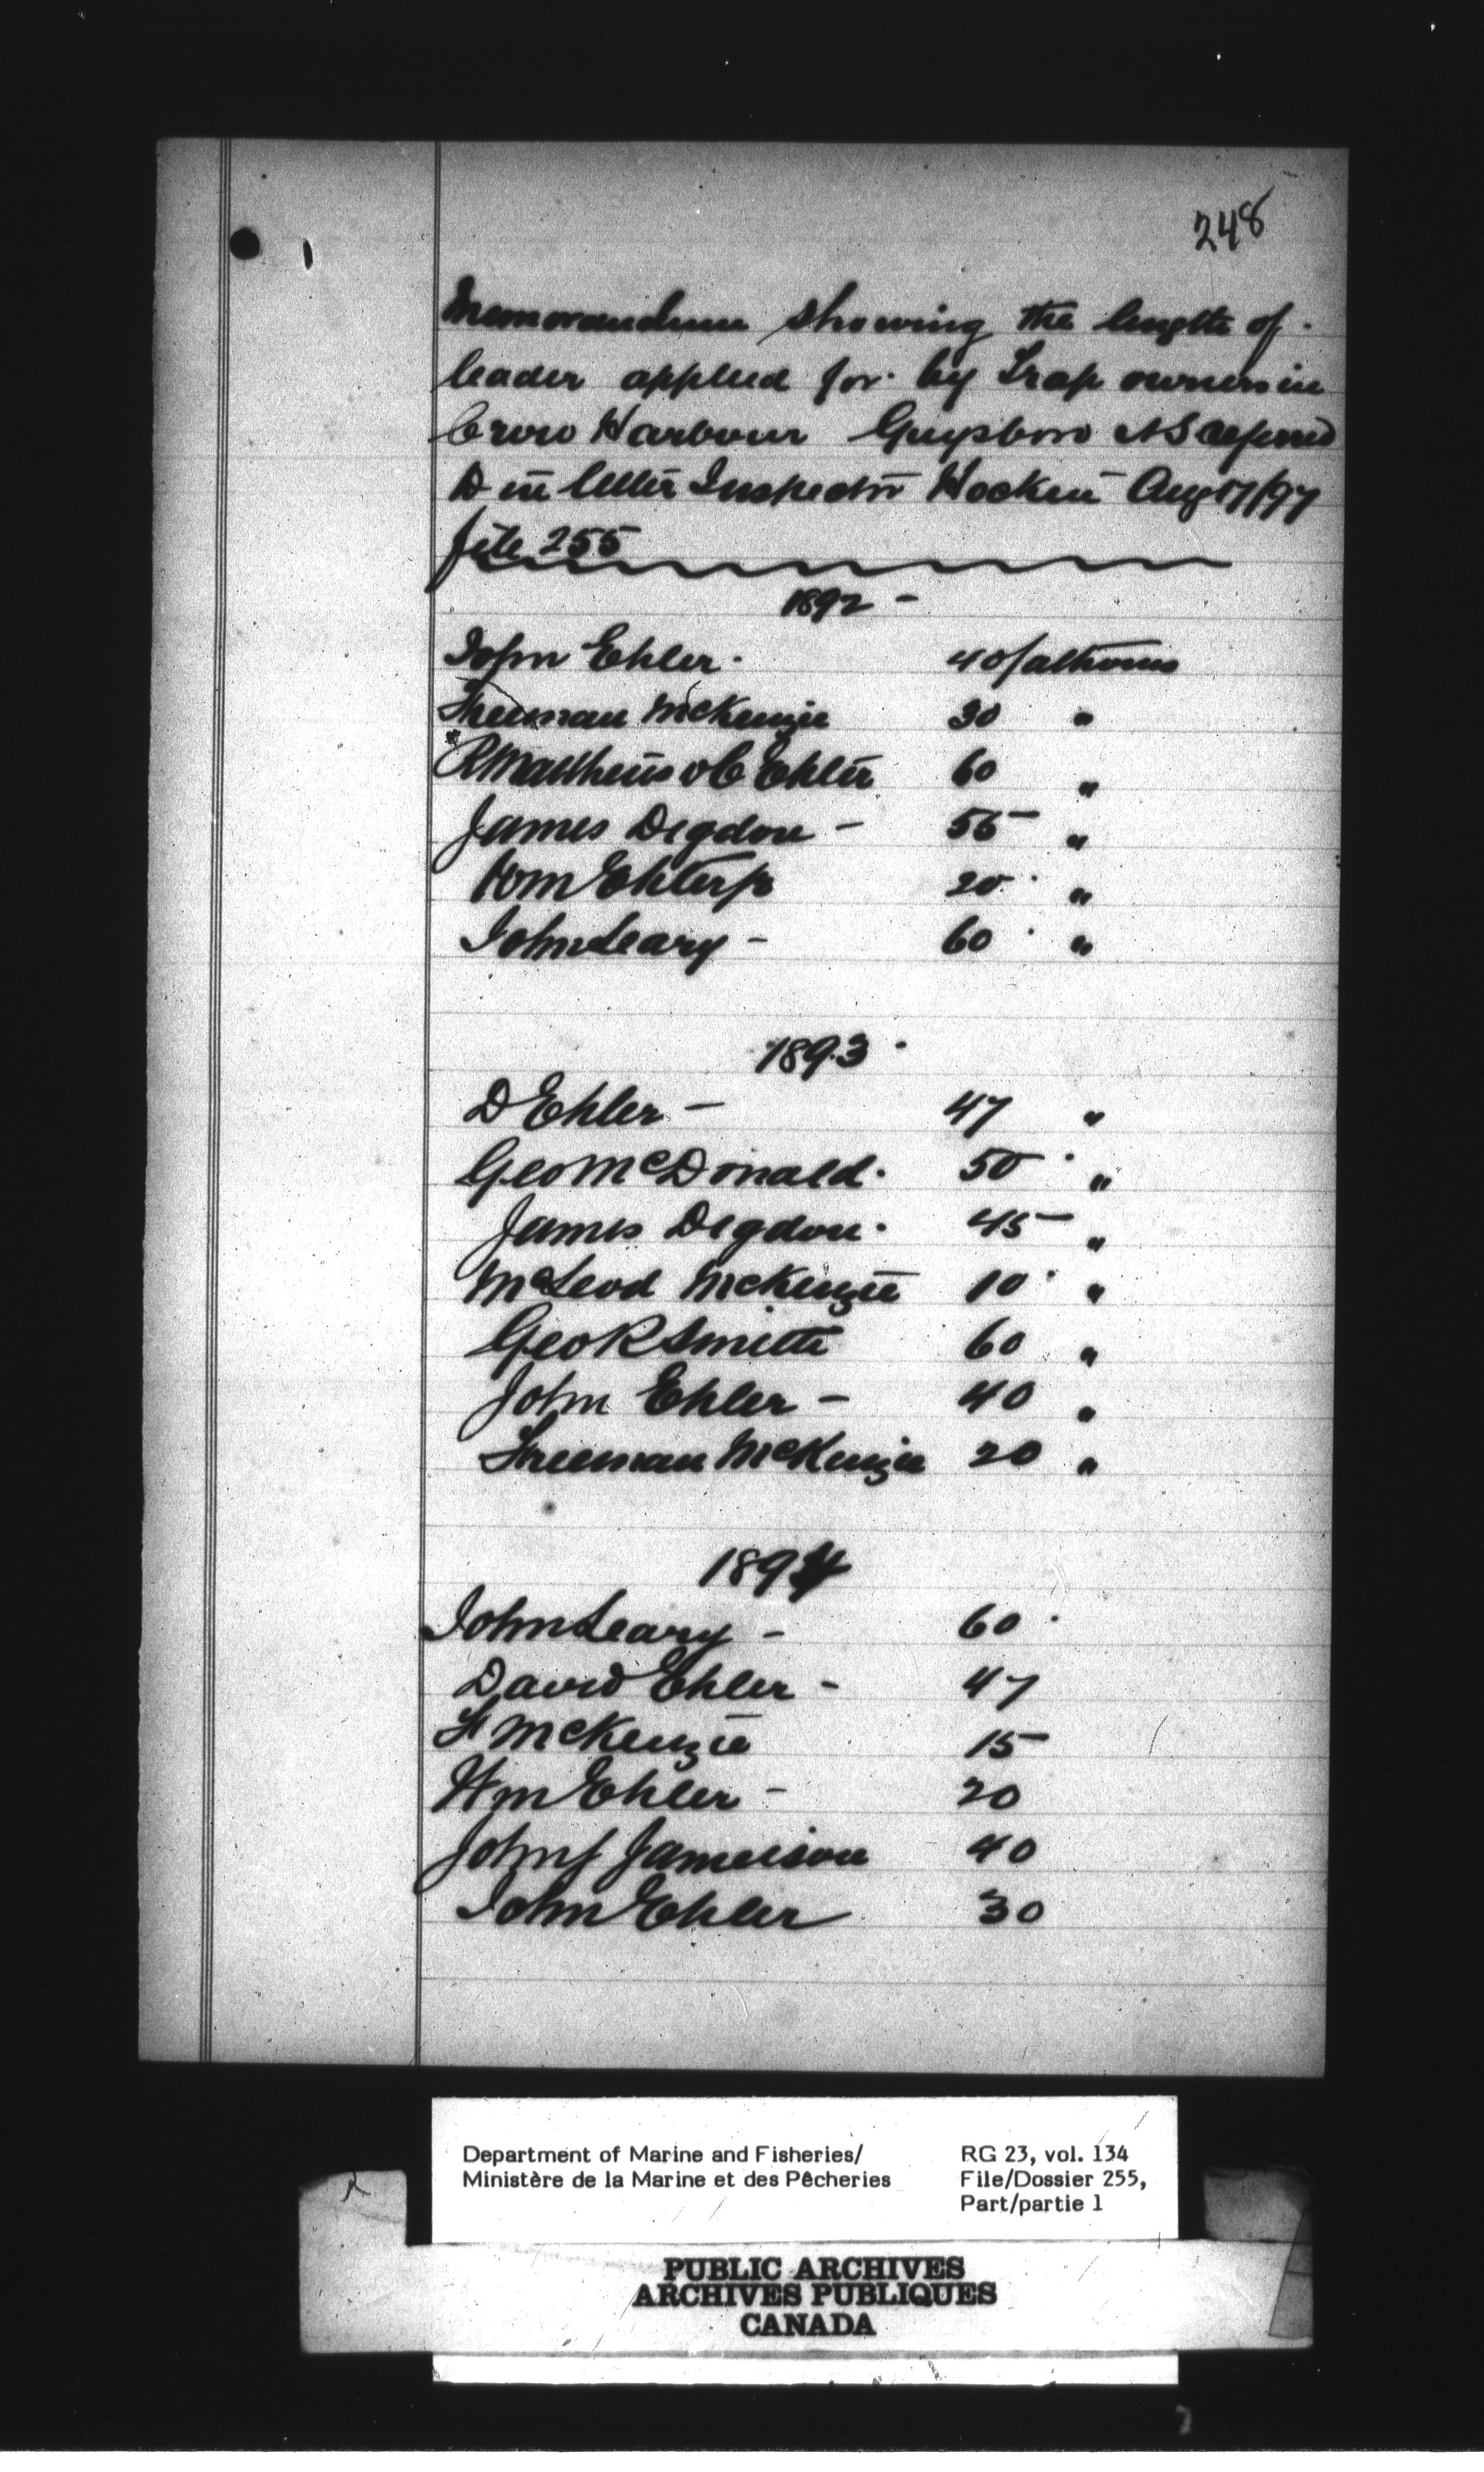 248
Memorandum showing the length of
leader applied for by Trap owners in
Crow Harbour Guysboro NS referred
to in letter Inspector Hockin Aug 17/97
file 255
1892 -
John Ehler. 40 fathoms
Freeman McKenzie 30 "
R Matthews & C Ehler 60 "
James Digdon - 55 "
Wm Ehler Jr 20 "
John Leary - 60 "
1893
D Ehler - 47 "
Geo McDonald. 50 "
James Digdon. 45 "
McLeod McKenzie 10 "
Geo R Smith 60 "
John Ehler - 40 "
Freeman McKenzie 20 "
1894
John Leary - 60
David Ehler - 47
F McKenzie 15
Wm Ehler - 20
John J Jameison 40
John Ehler 30
Department of Marine and Fisheries/ RG 23, vol. 134
Ministère de la Marine et des Pêcheries File/Dossier 255,
Part/partie 1
PUBLIC ARCHIVES
ARCHIVES PUBLIQUES
CANADA